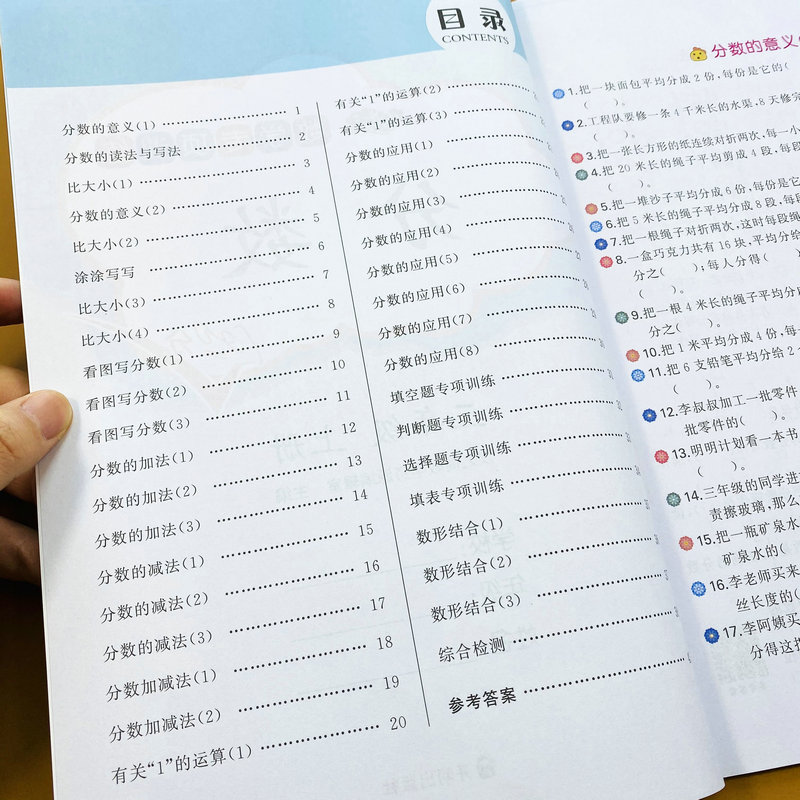 目录
CONTENTS
分数的意义(1) 1
分数的读法与写法 2
比大小(1) 3
分数的意义(2) 4
比大小(2) 5
涂涂写写 6
比大小(3) 7
比大小(4) 8
看图写分数(1) 9
看图写分数(2) 10
看图写分数(3) 11
分数的加法(1) 12
分数的加法(2) 13
分数的加法(3) 14
分数的减法(1) 15
分数的减法(2) 16
分数的减法(3) 17
分数加减法(1) 18
分数加减法(2) 19
有关“1”的运算(1) 20
有关“1”的运算(2)
有关“1”的运算(3)
分数的应用(1)
分数的应用(2)
分数的应用(3)
分数的应用(4)
分数的应用(5)
分数的应用(6)
分数的应用(7)
分数的应用(8)
填空题专项训练
判断题专项训练
选择题专项训练
填表专项训练
数形结合(1)
数形结合(2)
数形结合(3)
综合检测
参考答案
分数的意义
1.把一块面包平均分成2份,每份是它的(
( )。
2.工程队要修一条4千米长的水渠,8天修完
( )。
3.把一张长方形的纸连续对折两次,每一小
4.把20米长的绳子平均剪成4段,每段
( )。
5.把一堆沙子平均分成6份,每份是它
6.把5米长的绳子平均分成8段,每段
7.把一根绳子对折两次,这时每段绳
8.一盒巧克力共有16块,平均分给
分之( );每人分得(
( )。
9.把一根4米长的绳子平均分成
分之( )。
10.把1米平均分成4份,每
11.把6支铅笔平均分给2
( )。
12.李叔叔加工一批零件
批零件的( )。
13.明明计划看一本书
( )。
14.三年级的同学进
责擦玻璃,那么
15.把一瓶矿泉水
矿泉水的(
16.李老师买来
丝长度的(
17.李阿姨买
分得这